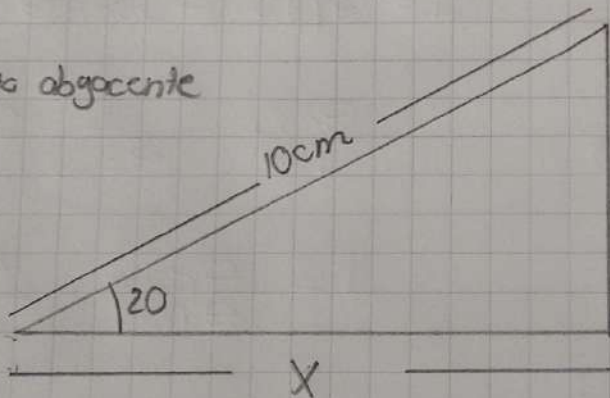 abgacente
10cm
20
X